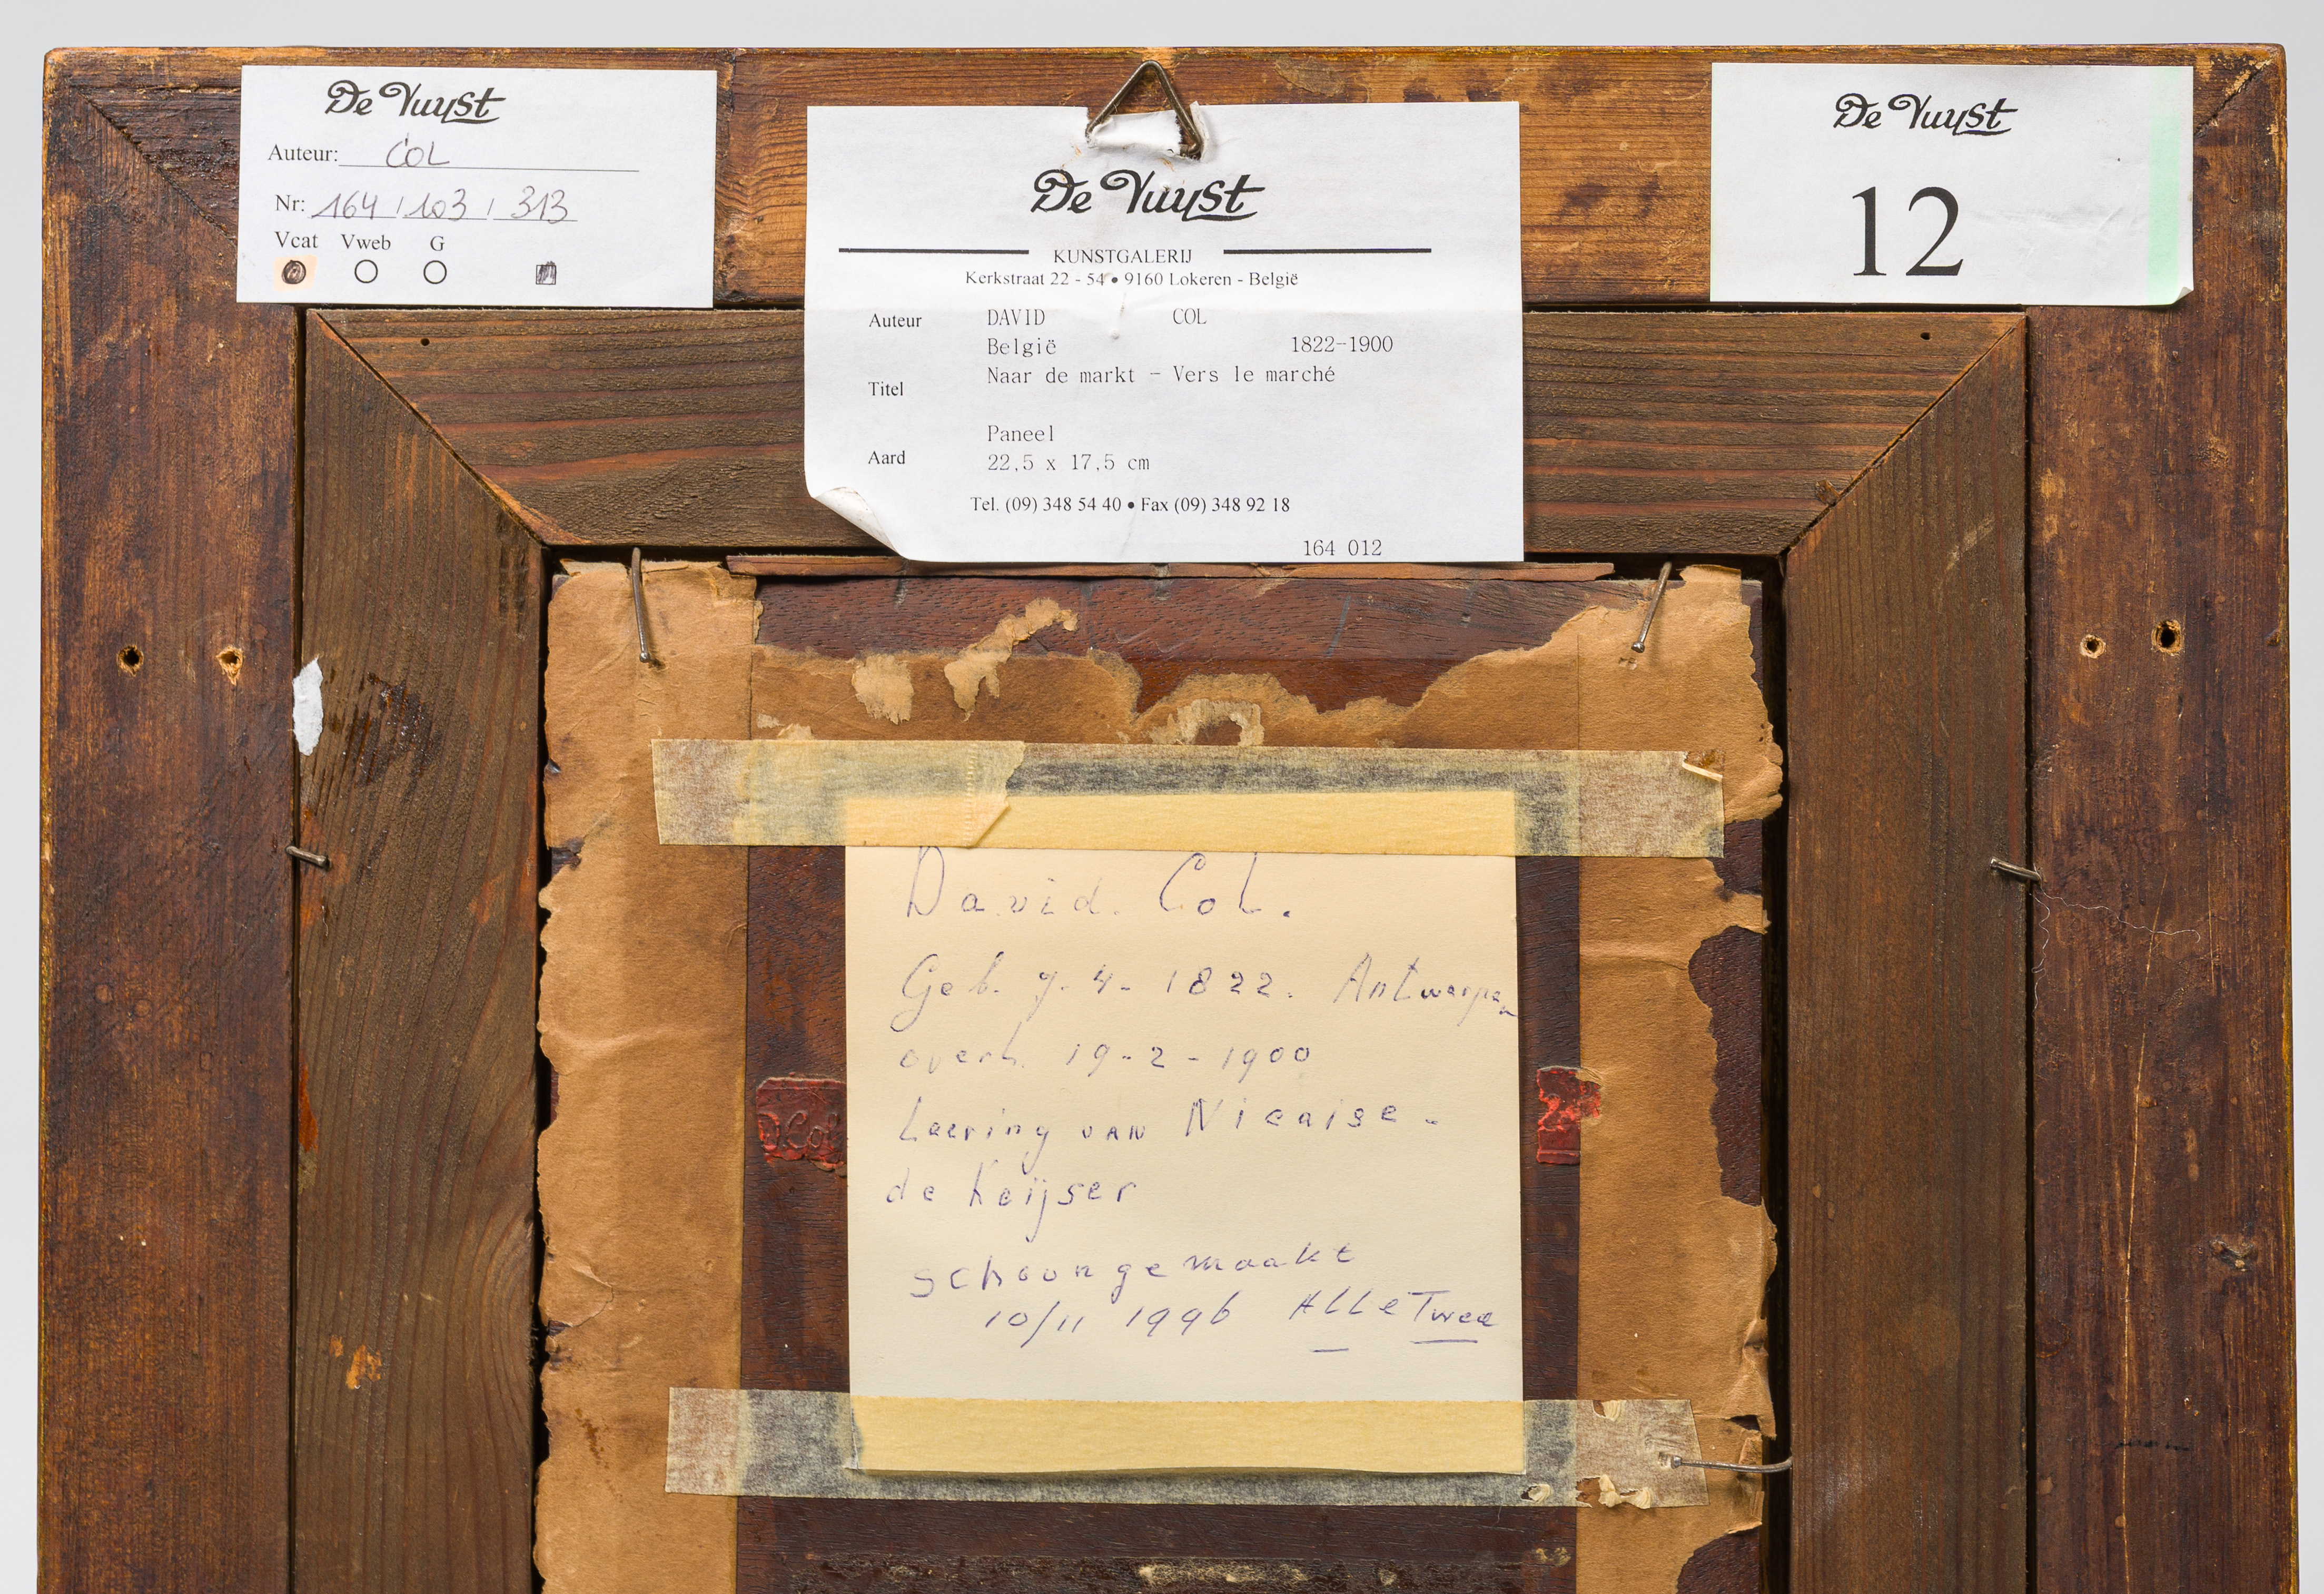 De Vuyst
Auteur: COL
Nr: 164 / 103 / 313
Vcat Vweb G
De Vuyst
KUNSTGALERIJ
Kerkstraat 22 - 54 • 9160 Lokeren - België
Auteur DAVID COL
België 1822-1900
Titel Naar de markt - Vers le marché
Paneel
Aard 22,5 x 17,5 cm
Tel. (09) 348 54 40 • Fax (09) 348 92 18
164 012
De Vuyst
12
David. Col.
Geb. 7-4-1822. Antwerpen
overl. 19-2-1900
Leering van Nicaise-
de Keijser
schoongemaakt
10/11 1996 ALLE Twee
Col